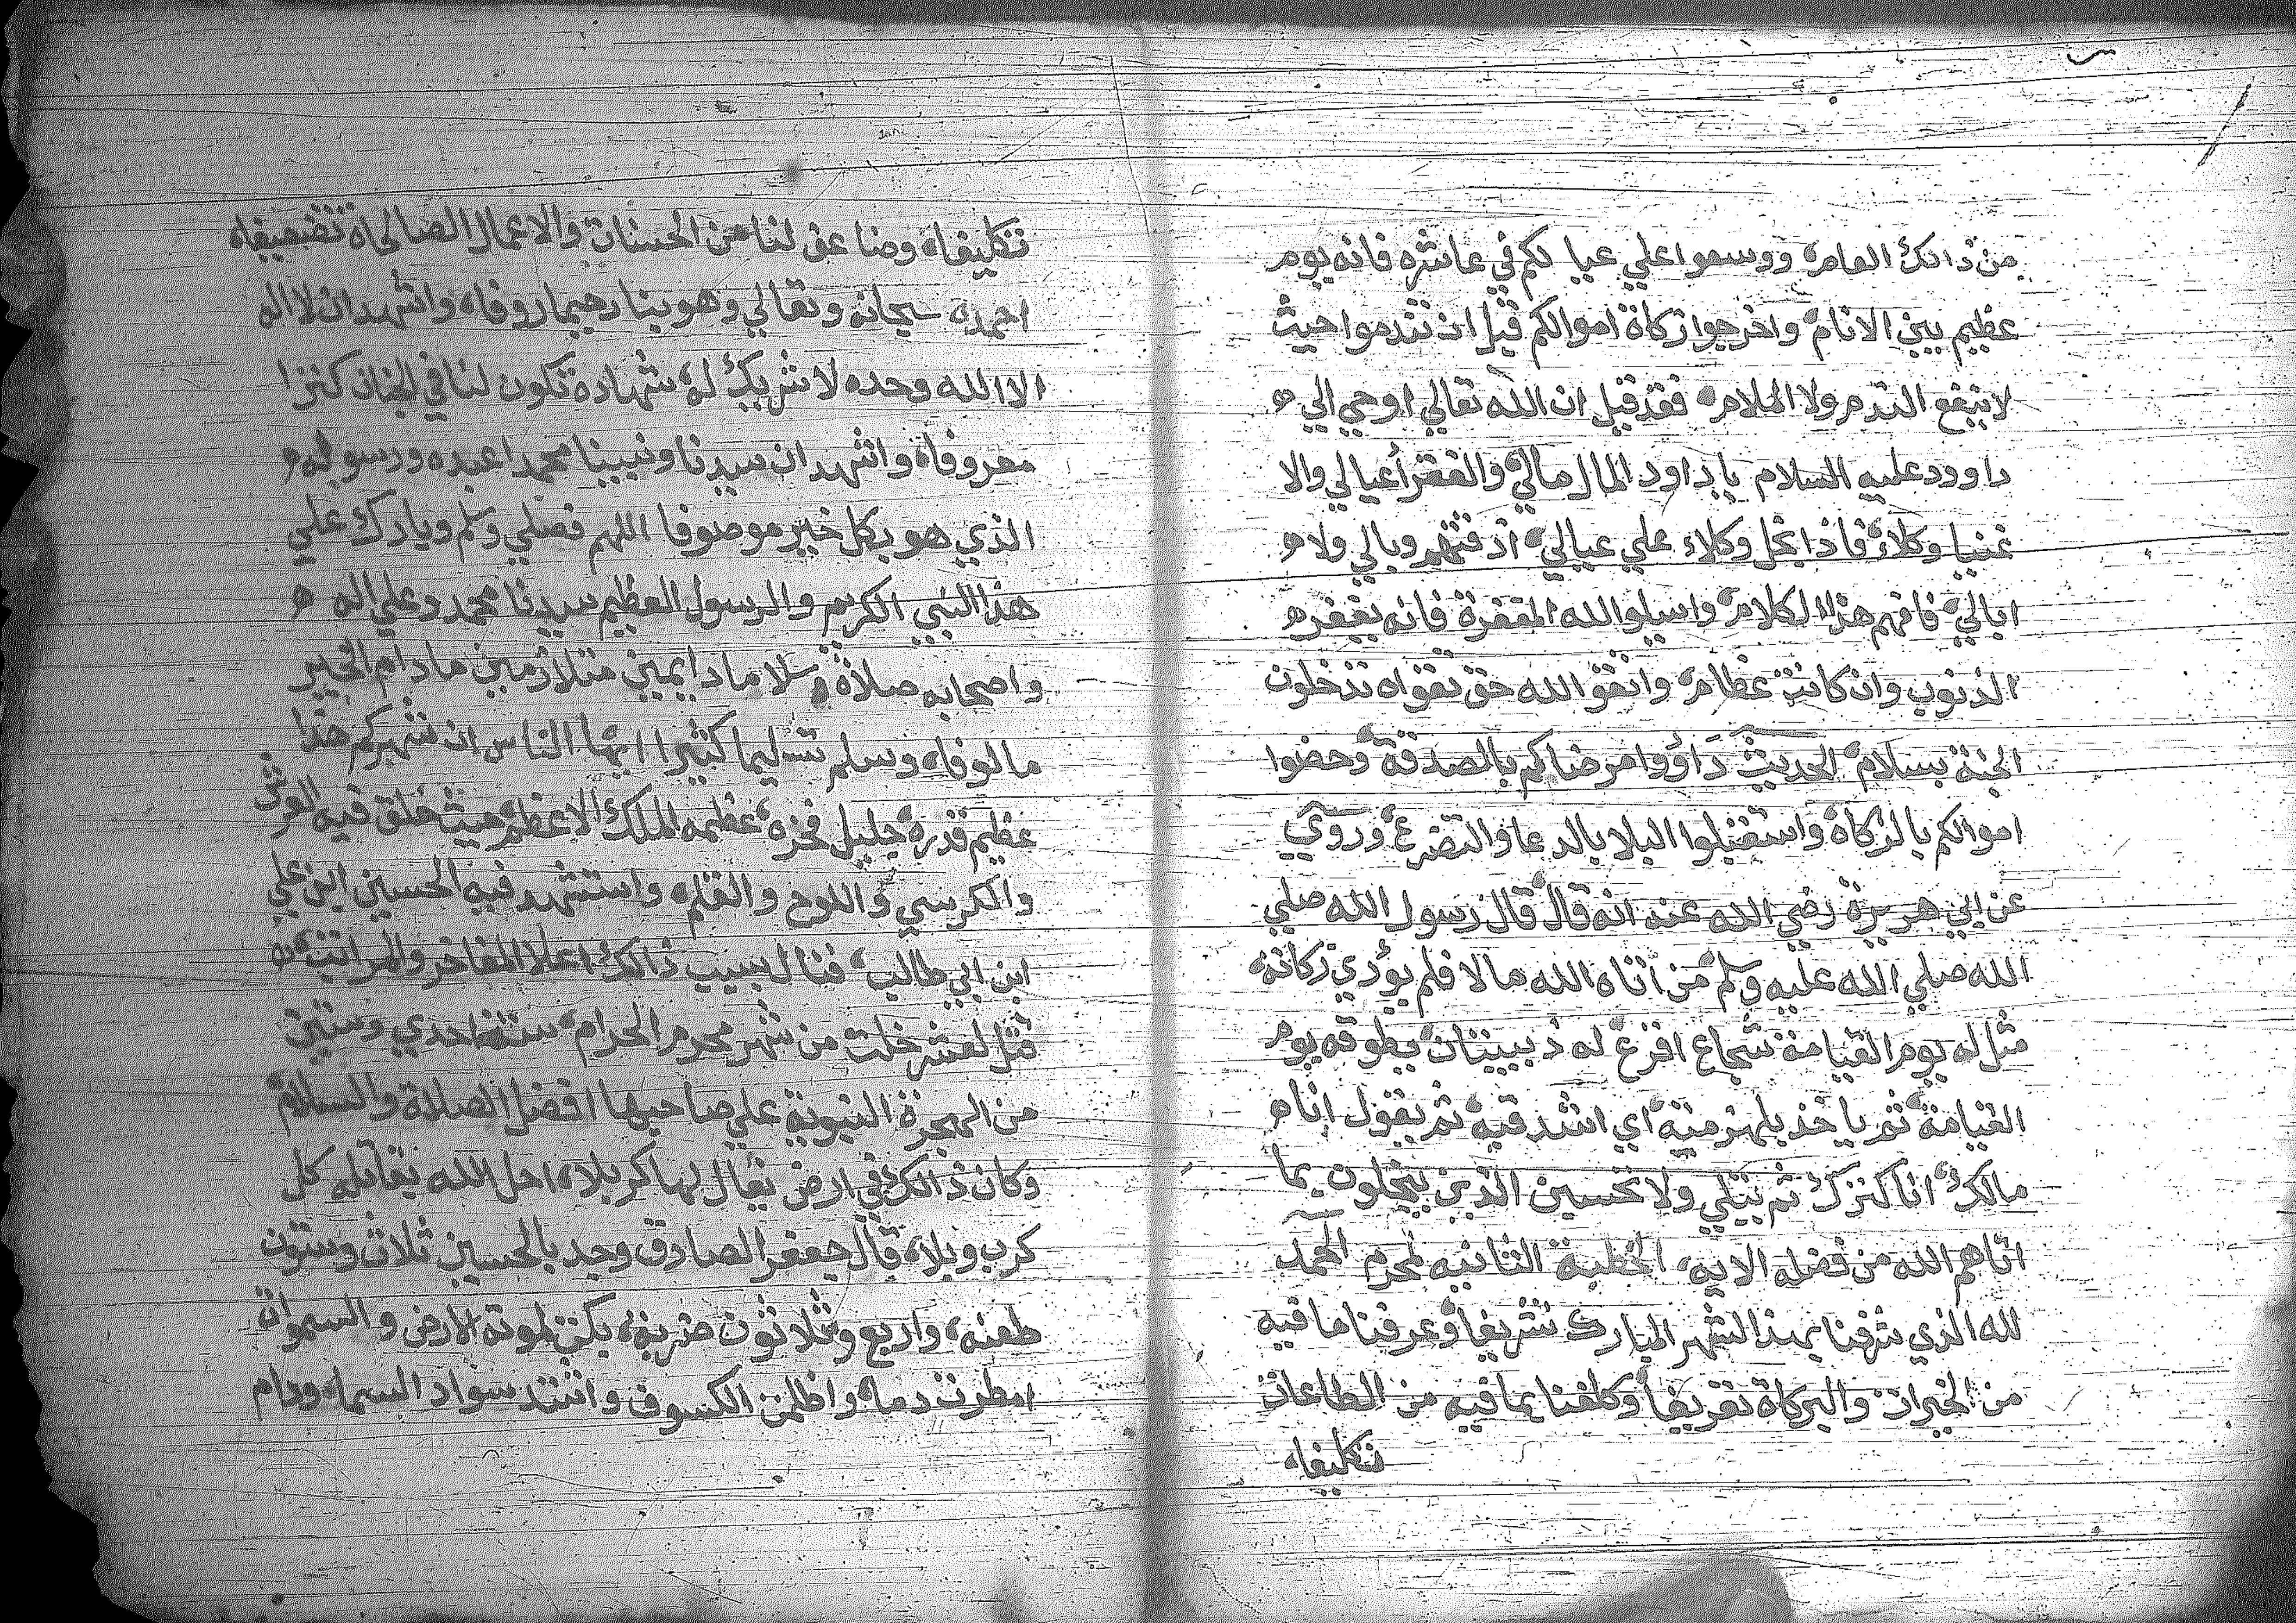 من ذالك العام ووسعوا علي عيالكم في عاشره فانه يوم
عظيم بين الانام واخرجوا زكاة اموالكم قبل ان تندموا حيث
لا ينفع الندم ولا الملام فقد قيل ان الله تعالي اوحي الي
داوود عليه السلام يا داود المال مالي والفقرأ عيالي والا
غنيا وكلاء فاذا بخل وكلاء علي عيالي اذقتهم وبالي ولا
ابالي فافهم هذا الكلام واسيلو الله المغفرة فانه يغفر
الذنوب وان كانت عظام واتقو الله حق تقواه تدخلون
الجنة بسلام الحديث داووا مرضاكم بالصدقة وحضوا
اموالكم بالزكاة واستقبلوا البلا بالدعا والتضرع وروي
عن ابي هريرة رضي الله عنه انه قال قال رسول الله صلي
الله صلي الله عليه وسلم من أتاه الله مالا فلم يؤدي زكاته
مثل له يوم القيامة شجاع اقرع له ذبيبتان يطوقه يوم
القيامة ثم ياخذ بلهزمته اي اشدقيه ثم يقول انا
مالك انا كنزك ثم يتلي ولا تحسبن الذين يبخلون بما
اتاهم الله من فضله الايه الخطبة الثانيه لمحرم الحمد
لله الذي شرفنا بهذا الشهر المبارك تشريفا وعرفنا ما فيه
من الخيرات والبركاة تعريفا وكلفنا بما فيه من الطاعات
تكليفاه
تكليفاه وضاعف لنا من الحسنات والاعمال الصالحاة تضعيفاه
احمده سبحانه وتعالي وهو بنا رحيما روفاه واشهد ان لا اله
الا الله وحده لا شريك له شهادة تكون لنا في الجنان كنزا
معروفاه واشهد ان سيدنا ونبينا محمدا عبده ورسوله
الذي هو بكل خير موصوفا اللهم فصلي وسلم وبارك علي
هذا النبي الكريم والرسول العظيم سيدنا محمد وعلي اله
واصحابه صلاة وسلاما دايمين متلازمين ما دام الخير
مالوفاه وسلم تسليما كثيرا ايها الناس ان شهركم هذا
عظيم قدره جليل فخره عظمه الملك الاعظم حيث خلق فيه العرش
والكرسي واللوح والقلم واستشهد فيه الحسين ابن علي
ابن ابي طالب فنال بسبب ذالك اعلا المفاخر والمراتب
قتل لعشر خلت من شهر محرم الحرام سنة احدي وستين
من الهجرة النبوية علي صاحبها افضل الصلاة والسلام
وكان ذالك في ارض يقال لها كربلاء احل الله بقاتله كل
كرب وبلاء قال جعفر الصادق وجد بالحسين ثلاث وستون
طعنه واربع وثلاثون ضربة بكت لموته الارض والسموات
امطرت دما واظلمن الكسوف واشتد سواد السماء ودام